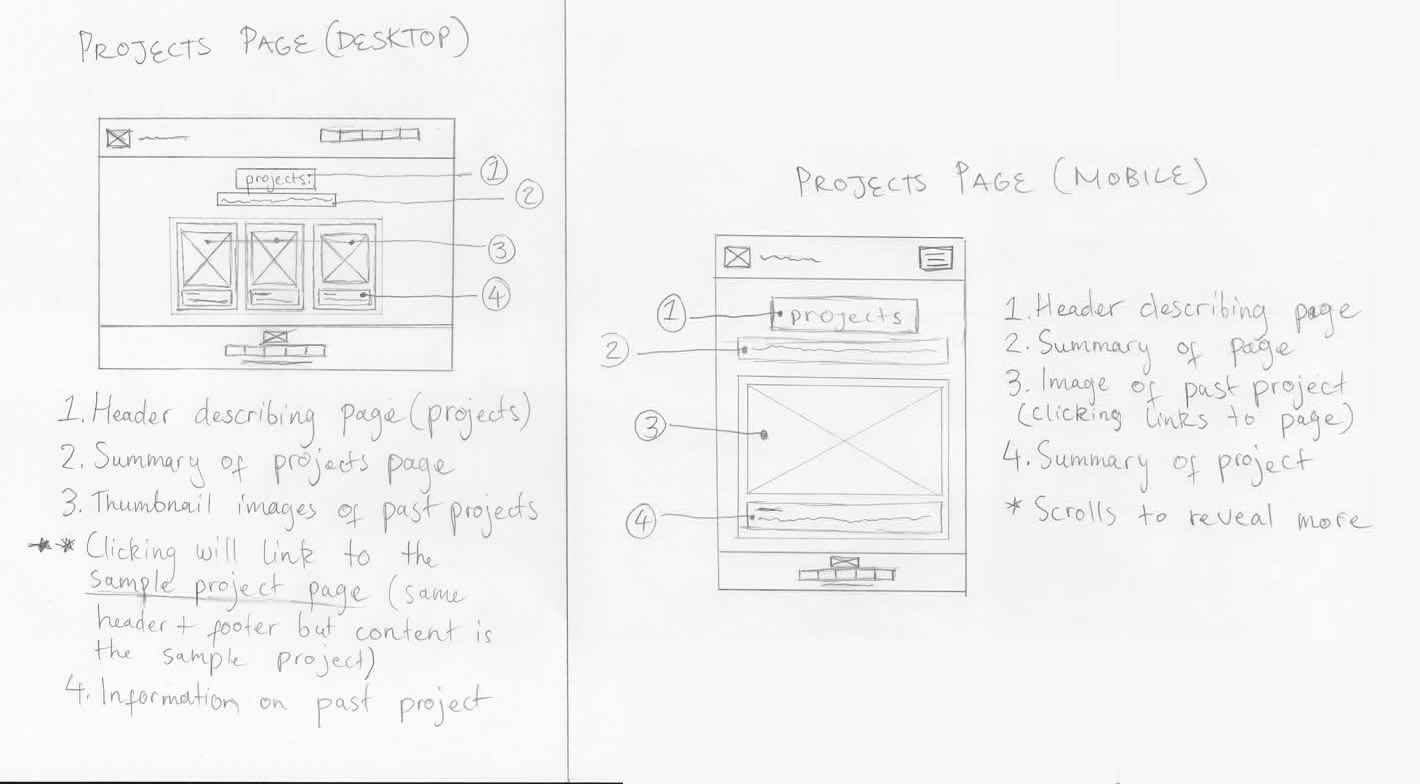 PROJECTS PAGE (DESKTOP)
projects:
1
2
3
4
1. Header describing page (projects)
2. Summary of projects page
3. Thumbnail images of past projects
** Clicking will link to the
sample project page (same
header + footer but content is
the sample project)
4. Information on past project
PROJECTS PAGE (MOBILE)
1
projects
2
3
4
1. Header describing page
2. Summary of page
3. Image of past project
(clicking links to page)
4. Summary of project
* Scrolls to reveal more